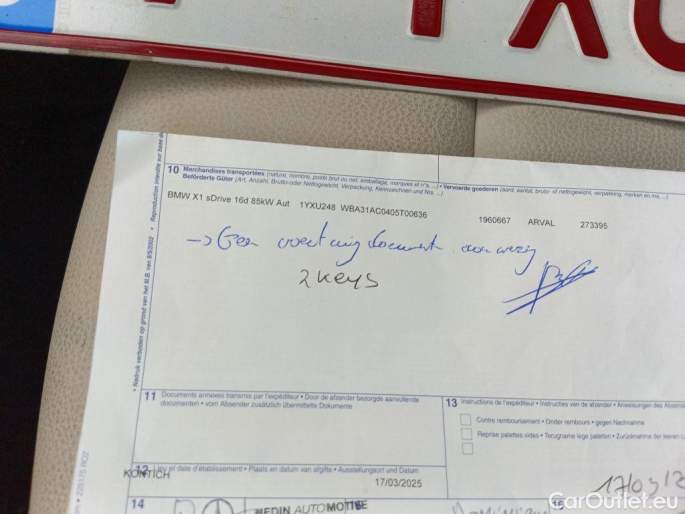 YXU
10 Merchandises transportées (nature, nombre, poids brut ou net, emballage, marques et n°s ...) • Vervoerde goederen (aard, aantal, bruto- of nettogewicht, verpakking, merken en nrs. ...)
Beförderte Güter (Art, Anzahl, Brutto-oder Nettogewicht, Verpackung, Kennzeichen und Nrs. ...)
BMW X1 sDrive 16d 85kW Aut 1YXU248 WBA31AC0405T00636 1960667 ARVAL 273395
→ Geen voertuig document aanwezig
2 Keys
11 Documents annexes transmis par l'expéditeur • Door de afzender bezorgde aanvullende
documenten • vom Absender zusätzlich übermittelte Dokumente
13 Instructions de l'expéditeur • Instructies van de afzender • Anweisungen des
Contre remboursement • Onder rembours • gegen Nachnahme
Reprise palettes vides • Terugname lege paletten • Zurücknahme der leeren
12 Lieu et date d'établissement • Plaats en datum van afgifte • Ausstellungsort und Datum
KONTICH
17/03/2025
17/03/2
14
MEDIN AUTOMOTIVE
CarOutlet.eu